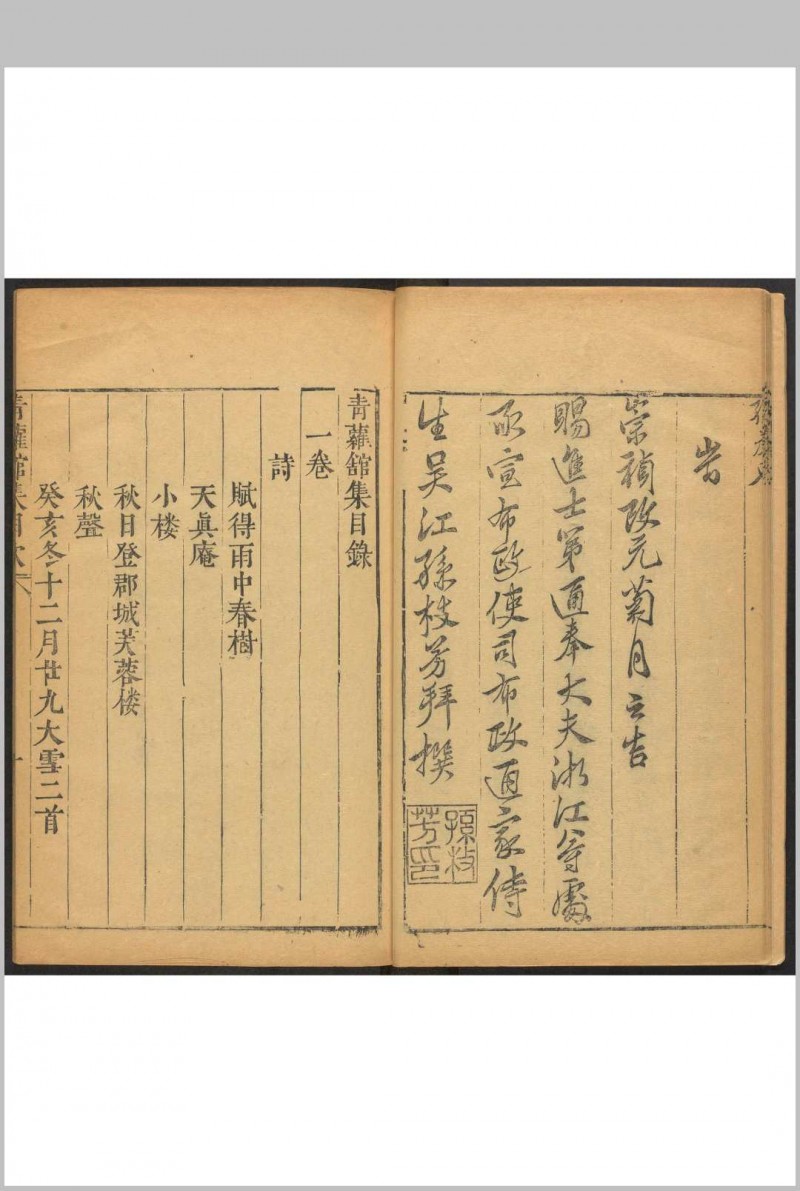 旹
崇禎改元菊月之吉
賜進士第通奉大夫浙江等處
承宣布政使司布政通家侍
生吳江孫枝芳拜撰
孫枝芳印
青蘿舘集目錄
一卷
詩
賦得雨中春樹
天眞庵
小楼
秋日登郡城芙蓉楼
秋聲
癸亥冬十二月廿九大雪二首
青蘿舘集目次
一